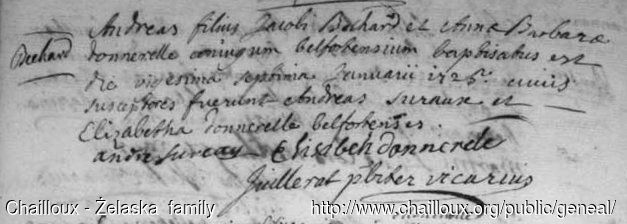 Andreas filius Jacobi Bechard et Annæ Barbaræ
Bechard
donnerelle coniugum belfortensium baptisatus est
die vigesima septima Januarii 1725. cuius
susceptores fuerunt Andreas suraux et
Elizabetha donnerelle belfortenses.
andre sureay Elisabeh donnerele
Juillerat pbiter vicarius
Chailloux - Želaska family http://www.chailloux.org/public/geneal/